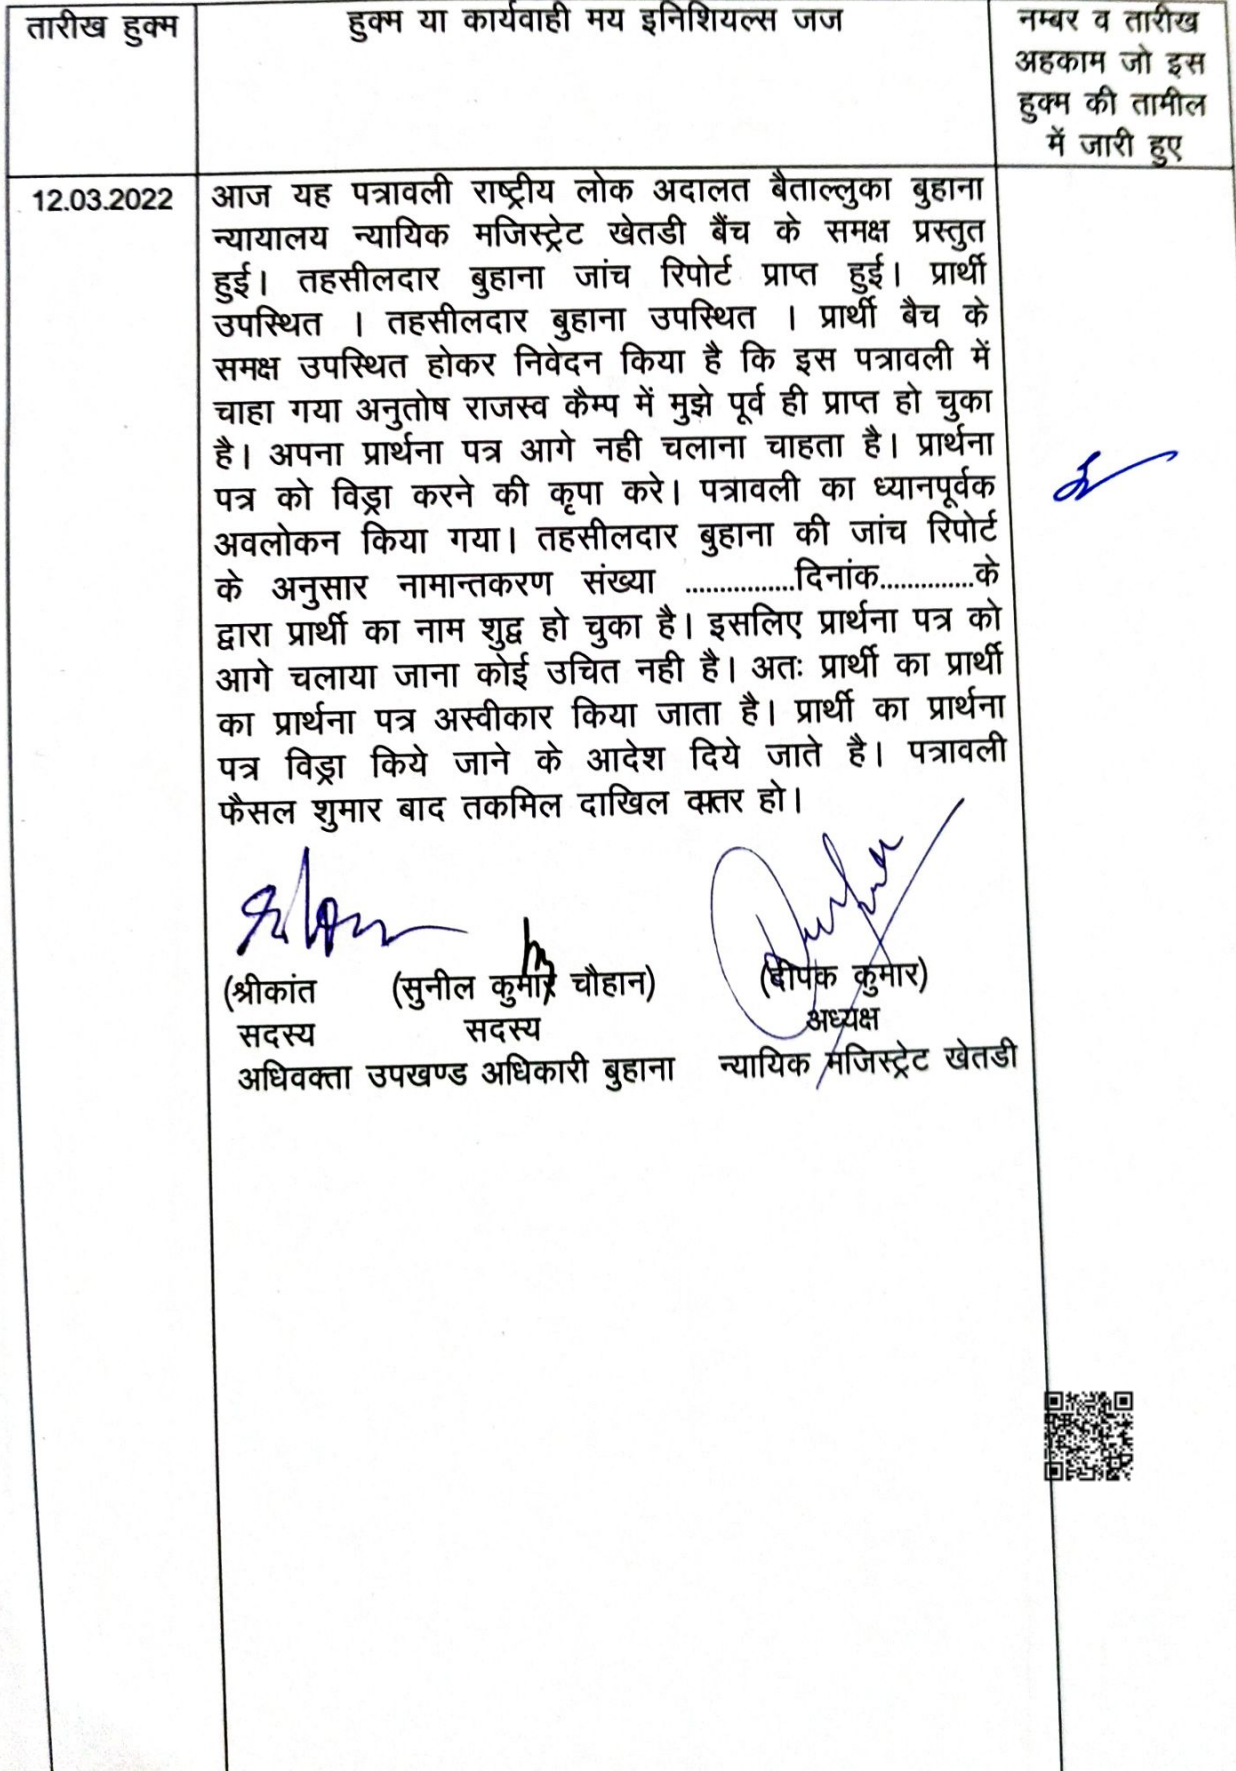 तारीख हुक्म
हुक्म या कार्यवाही मय इनिशियल्स जज
नम्बर व तारीख
अहकाम जो इस
हुक्म की तामील
में जारी हुए
12.03.2022
आज यह पत्रावली राष्ट्रीय लोक अदालत बैताल्लुका बुहाना
न्यायालय न्यायिक मजिस्ट्रेट खेतडी बैंच के समक्ष प्रस्तुत
हुई। तहसीलदार बुहाना जांच रिपोर्ट प्राप्त हुई। प्रार्थी
उपस्थित । तहसीलदार बुहाना उपस्थित । प्रार्थी बैच के
समक्ष उपस्थित होकर निवेदन किया है कि इस पत्रावली में
चाहा गया अनुतोष राजस्व कैम्प में मुझे पूर्व ही प्राप्त हो चुका
है। अपना प्रार्थना पत्र आगे नही चलाना चाहता है। प्रार्थना
पत्र को विड्रा करने की कृपा करे। पत्रावली का ध्यानपूर्वक
अवलोकन किया गया। तहसीलदार बुहाना की जांच रिपोर्ट
के अनुसार नामान्तकरण संख्या ................दिनांक..............के
द्वारा प्रार्थी का नाम शुद्व हो चुका है। इसलिए प्रार्थना पत्र को
आगे चलाया जाना कोई उचित नही है। अतः प्रार्थी का प्रार्थी
का प्रार्थना पत्र अस्वीकार किया जाता है। प्रार्थी का प्रार्थना
पत्र विड्रा किये जाने के आदेश दिये जाते है। पत्रावली
फैसल शुमार बाद तकमिल दाखिल हो।
(श्रीकांत (सुनील कुमार चौहान) (दीपक कुमार)
सदस्य सदस्य अध्यक्ष
अधिवक्ता उपखण्ड अधिकारी बुहाना न्यायिक मजिस्ट्रेट खेतडी